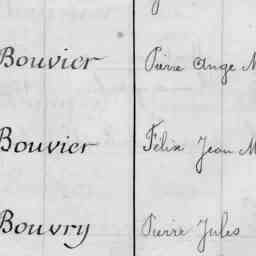 Bouvier Pierre Ange
Bouvier Félix Jean
Bouvry Pierre Jules